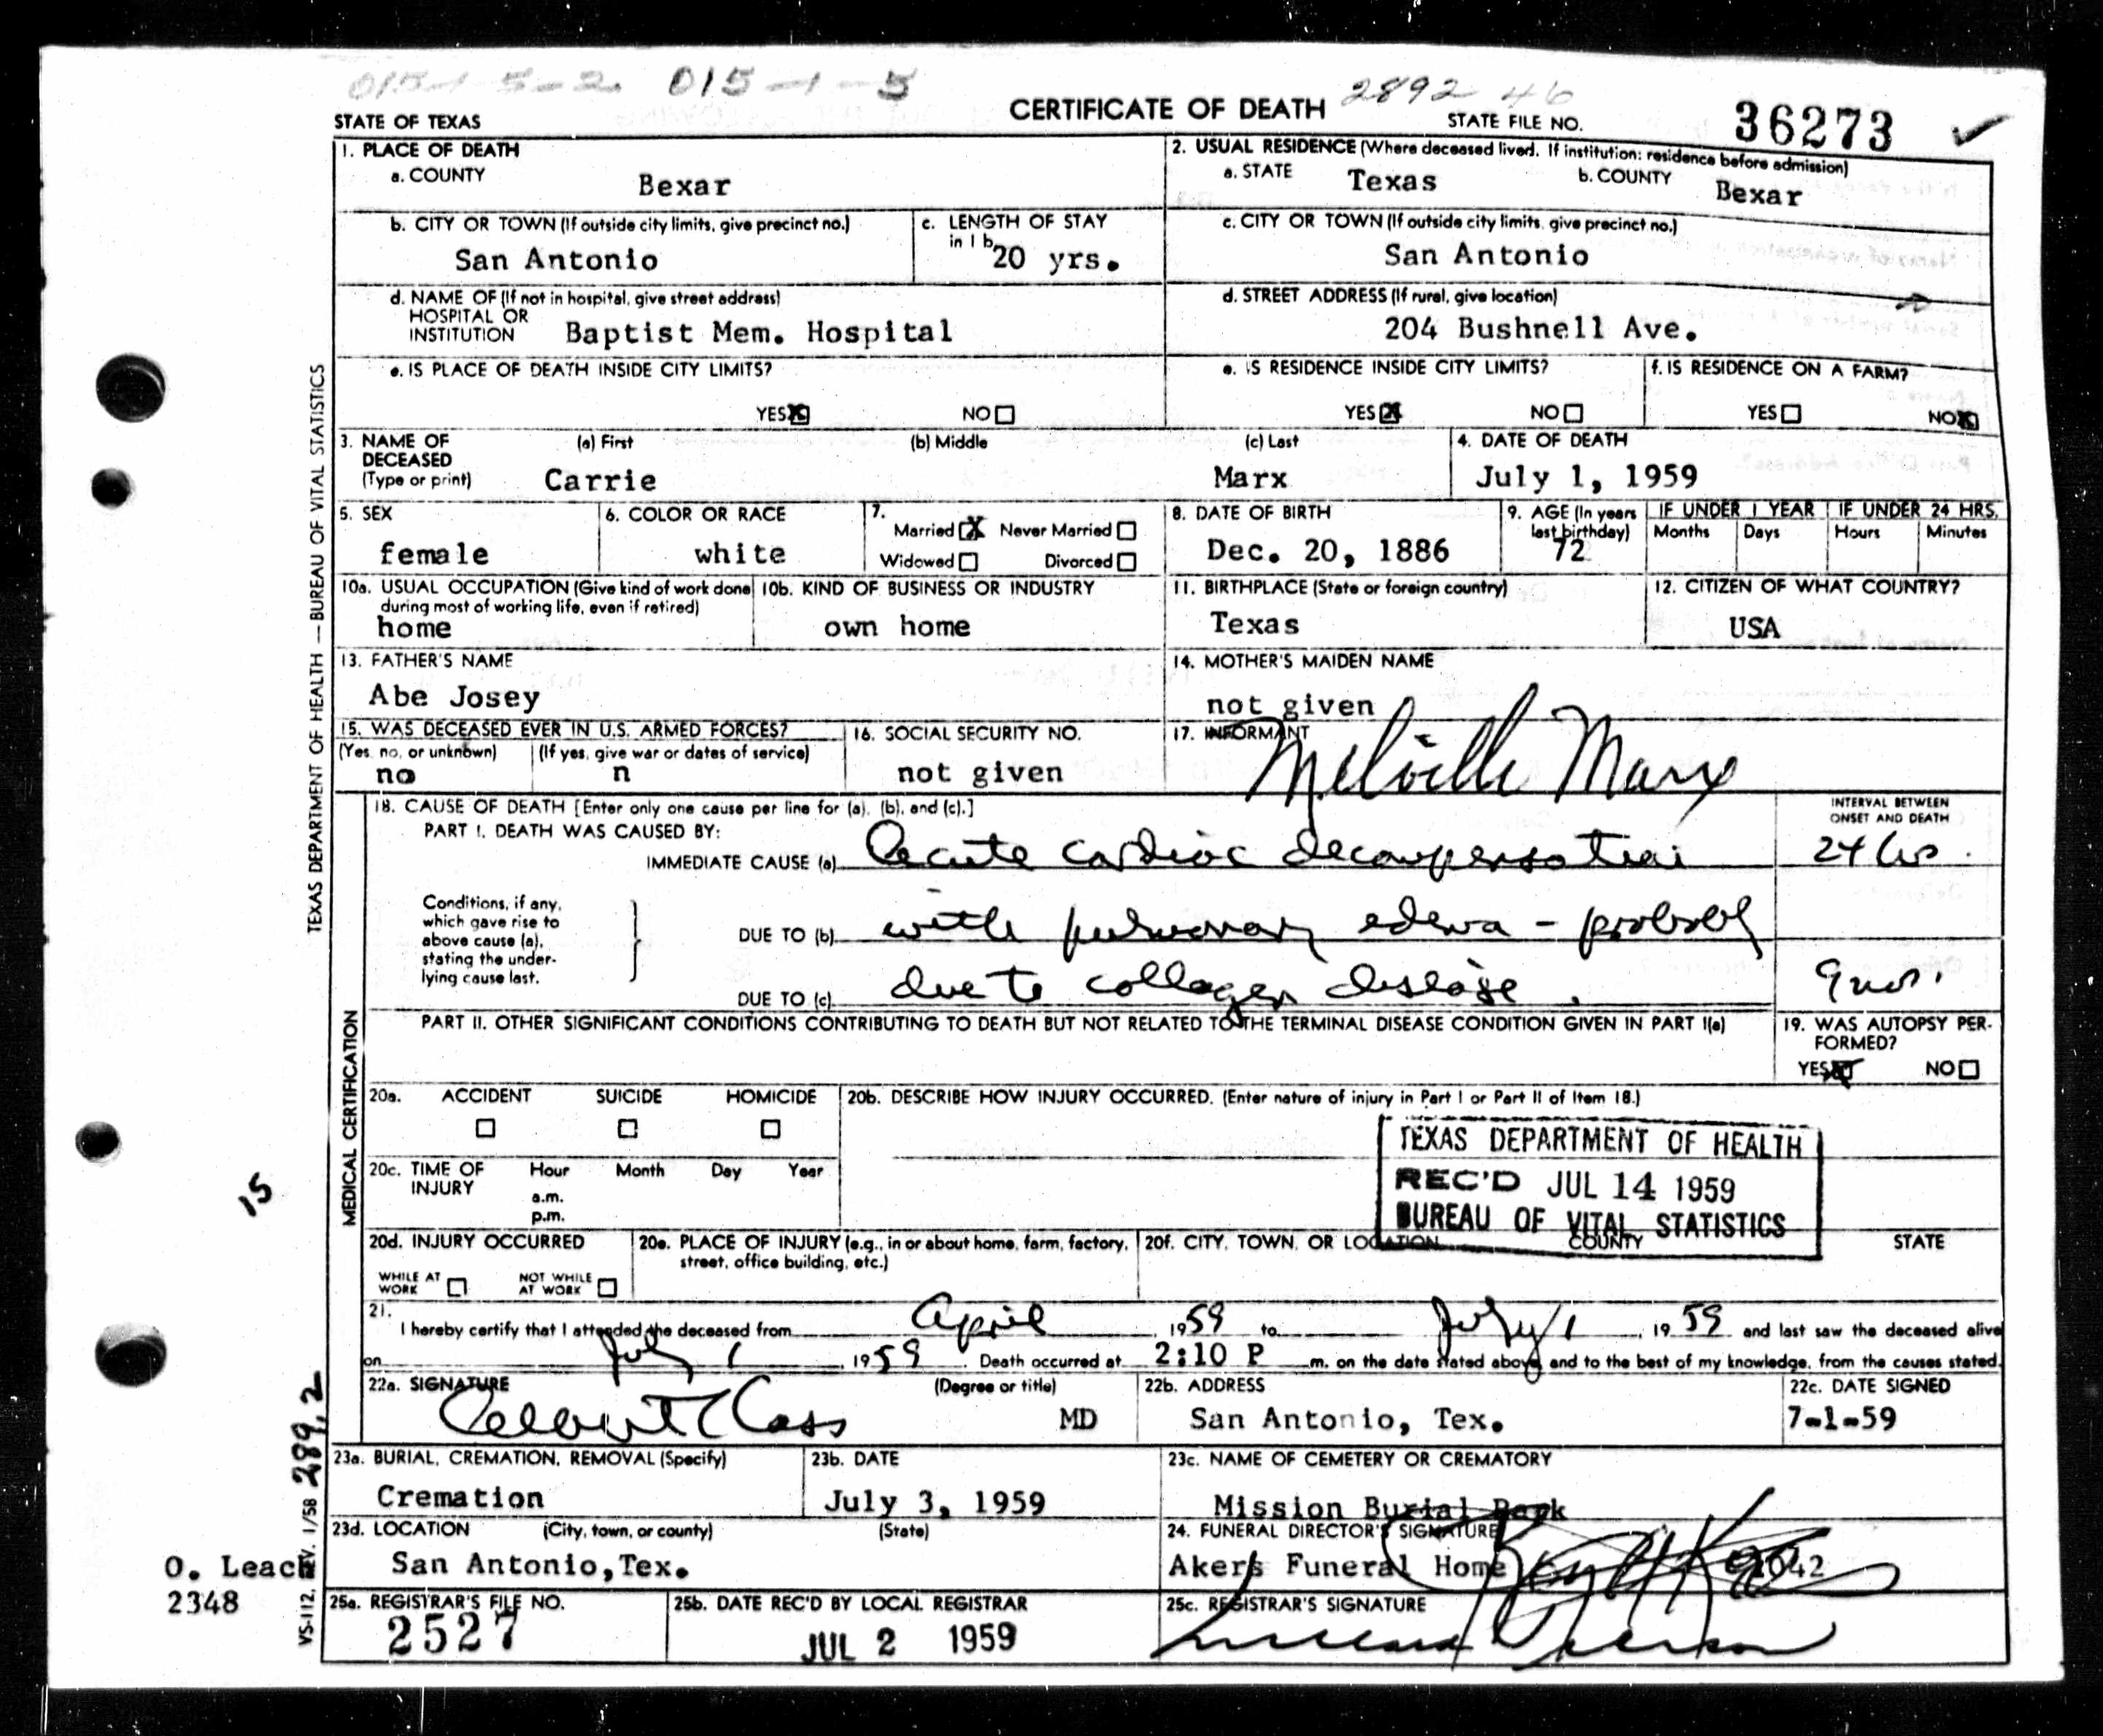 015-1-5-2 015-1-5
2892 46
STATE OF TEXAS
CERTIFICATE OF DEATH
STATE FILE NO. 36273
1. PLACE OF DEATH
a. COUNTY
Bexar
2. USUAL RESIDENCE (Where deceased lived. If institution: residence before admission)
a. STATE Texas b. COUNTY Bexar
b. CITY OR TOWN (If outside city limits, give precinct no.)
San Antonio
c. LENGTH OF STAY
in 1 b
20 yrs.
c. CITY OR TOWN (If outside city limits, give precinct no.)
San Antonio
d. NAME OF (If not in hospital, give street address)
HOSPITAL OR
INSTITUTION Baptist Mem. Hospital
d. STREET ADDRESS (If rural, give location)
204 Bushnell Ave.
e. IS PLACE OF DEATH INSIDE CITY LIMITS?
YES NO
e. IS RESIDENCE INSIDE CITY LIMITS?
YES NO
f. IS RESIDENCE ON A FARM?
YES NO
3. NAME OF
DECEASED
(Type or print)
(a) First (b) Middle (c) Last
Carrie Marx
4. DATE OF DEATH
July 1, 1959
5. SEX
female
6. COLOR OR RACE
white
7.
Married X Never Married
Widowed Divorced
8. DATE OF BIRTH
Dec. 20, 1886
9. AGE (In years
last birthday)
72
IF UNDER 1 YEAR IF UNDER 24 HRS.
Months Days Hours Minutes
10a. USUAL OCCUPATION (Give kind of work done
during most of working life, even if retired)
home
10b. KIND OF BUSINESS OR INDUSTRY
own home
11. BIRTHPLACE (State or foreign country)
Texas
12. CITIZEN OF WHAT COUNTRY?
USA
13. FATHER'S NAME
Abe Josey
14. MOTHER'S MAIDEN NAME
not given
15. WAS DECEASED EVER IN U.S. ARMED FORCES?
(Yes, no, or unknown) (If yes, give war or dates of service)
no n
16. SOCIAL SECURITY NO.
not given
17. INFORMANT
Melville Marx
18. CAUSE OF DEATH [Enter only one cause per line for (a), (b), and (c).]
PART I. DEATH WAS CAUSED BY:
IMMEDIATE CAUSE (a) Acute cardiac decompensation
INTERVAL BETWEEN
ONSET AND DEATH
24 hrs.
Conditions, if any,
which gave rise to
above cause (a),
stating the under-
lying cause last.
DUE TO (b) with pulmonary edema - probably
DUE TO (c) due to collagen disease.
9 mos.
PART II. OTHER SIGNIFICANT CONDITIONS CONTRIBUTING TO DEATH BUT NOT RELATED TO THE TERMINAL DISEASE CONDITION GIVEN IN PART I(a)
19. WAS AUTOPSY PER-
FORMED?
YES NO
20a. ACCIDENT SUICIDE HOMICIDE
20b. DESCRIBE HOW INJURY OCCURRED. (Enter nature of injury in Part I or Part II of Item 18.)
20c. TIME OF
INJURY
Hour Month Day Year
a.m.
p.m.
TEXAS DEPARTMENT OF HEALTH
REC'D JUL 14 1959
BUREAU OF VITAL STATISTICS
20d. INJURY OCCURRED
WHILE AT
WORK
NOT WHILE
AT WORK
20e. PLACE OF INJURY (e.g., in or about home, farm, factory,
street, office building, etc.)
20f. CITY, TOWN, OR LOCATION COUNTY STATE
21.
I hereby certify that I attended the deceased from April, 1959 to July 1, 1959 and last saw the deceased alive
on July 1, 1959. Death occurred at 2:10 P m. on the date stated above, and to the best of my knowledge, from the causes stated.
22a. SIGNATURE (Degree or title)
MD
22b. ADDRESS
San Antonio, Tex.
22c. DATE SIGNED
7-1-59
23a. BURIAL, CREMATION, REMOVAL (Specify)
Cremation
23b. DATE
July 3, 1959
23c. NAME OF CEMETERY OR CREMATORY
Mission Burial Park
23d. LOCATION (City, town, or county) (State)
San Antonio,Tex.
24. FUNERAL DIRECTOR'S SIGNATURE
Akers Funeral Home
25a. REGISTRAR'S FILE NO.
2527
25b. DATE REC'D BY LOCAL REGISTRAR
JUL 2 1959
25c. REGISTRAR'S SIGNATURE
TEXAS DEPARTMENT OF HEALTH — BUREAU OF VITAL STATISTICS
MEDICAL CERTIFICATION
15
289.2
VS-112, REV. 1/58
O. Leach
2348